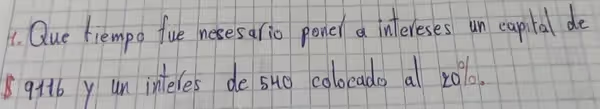 1. Que tiempo fue nesesario poner a intereses un capital de
$ 9116 y un interes de 540 colocado al 20%.